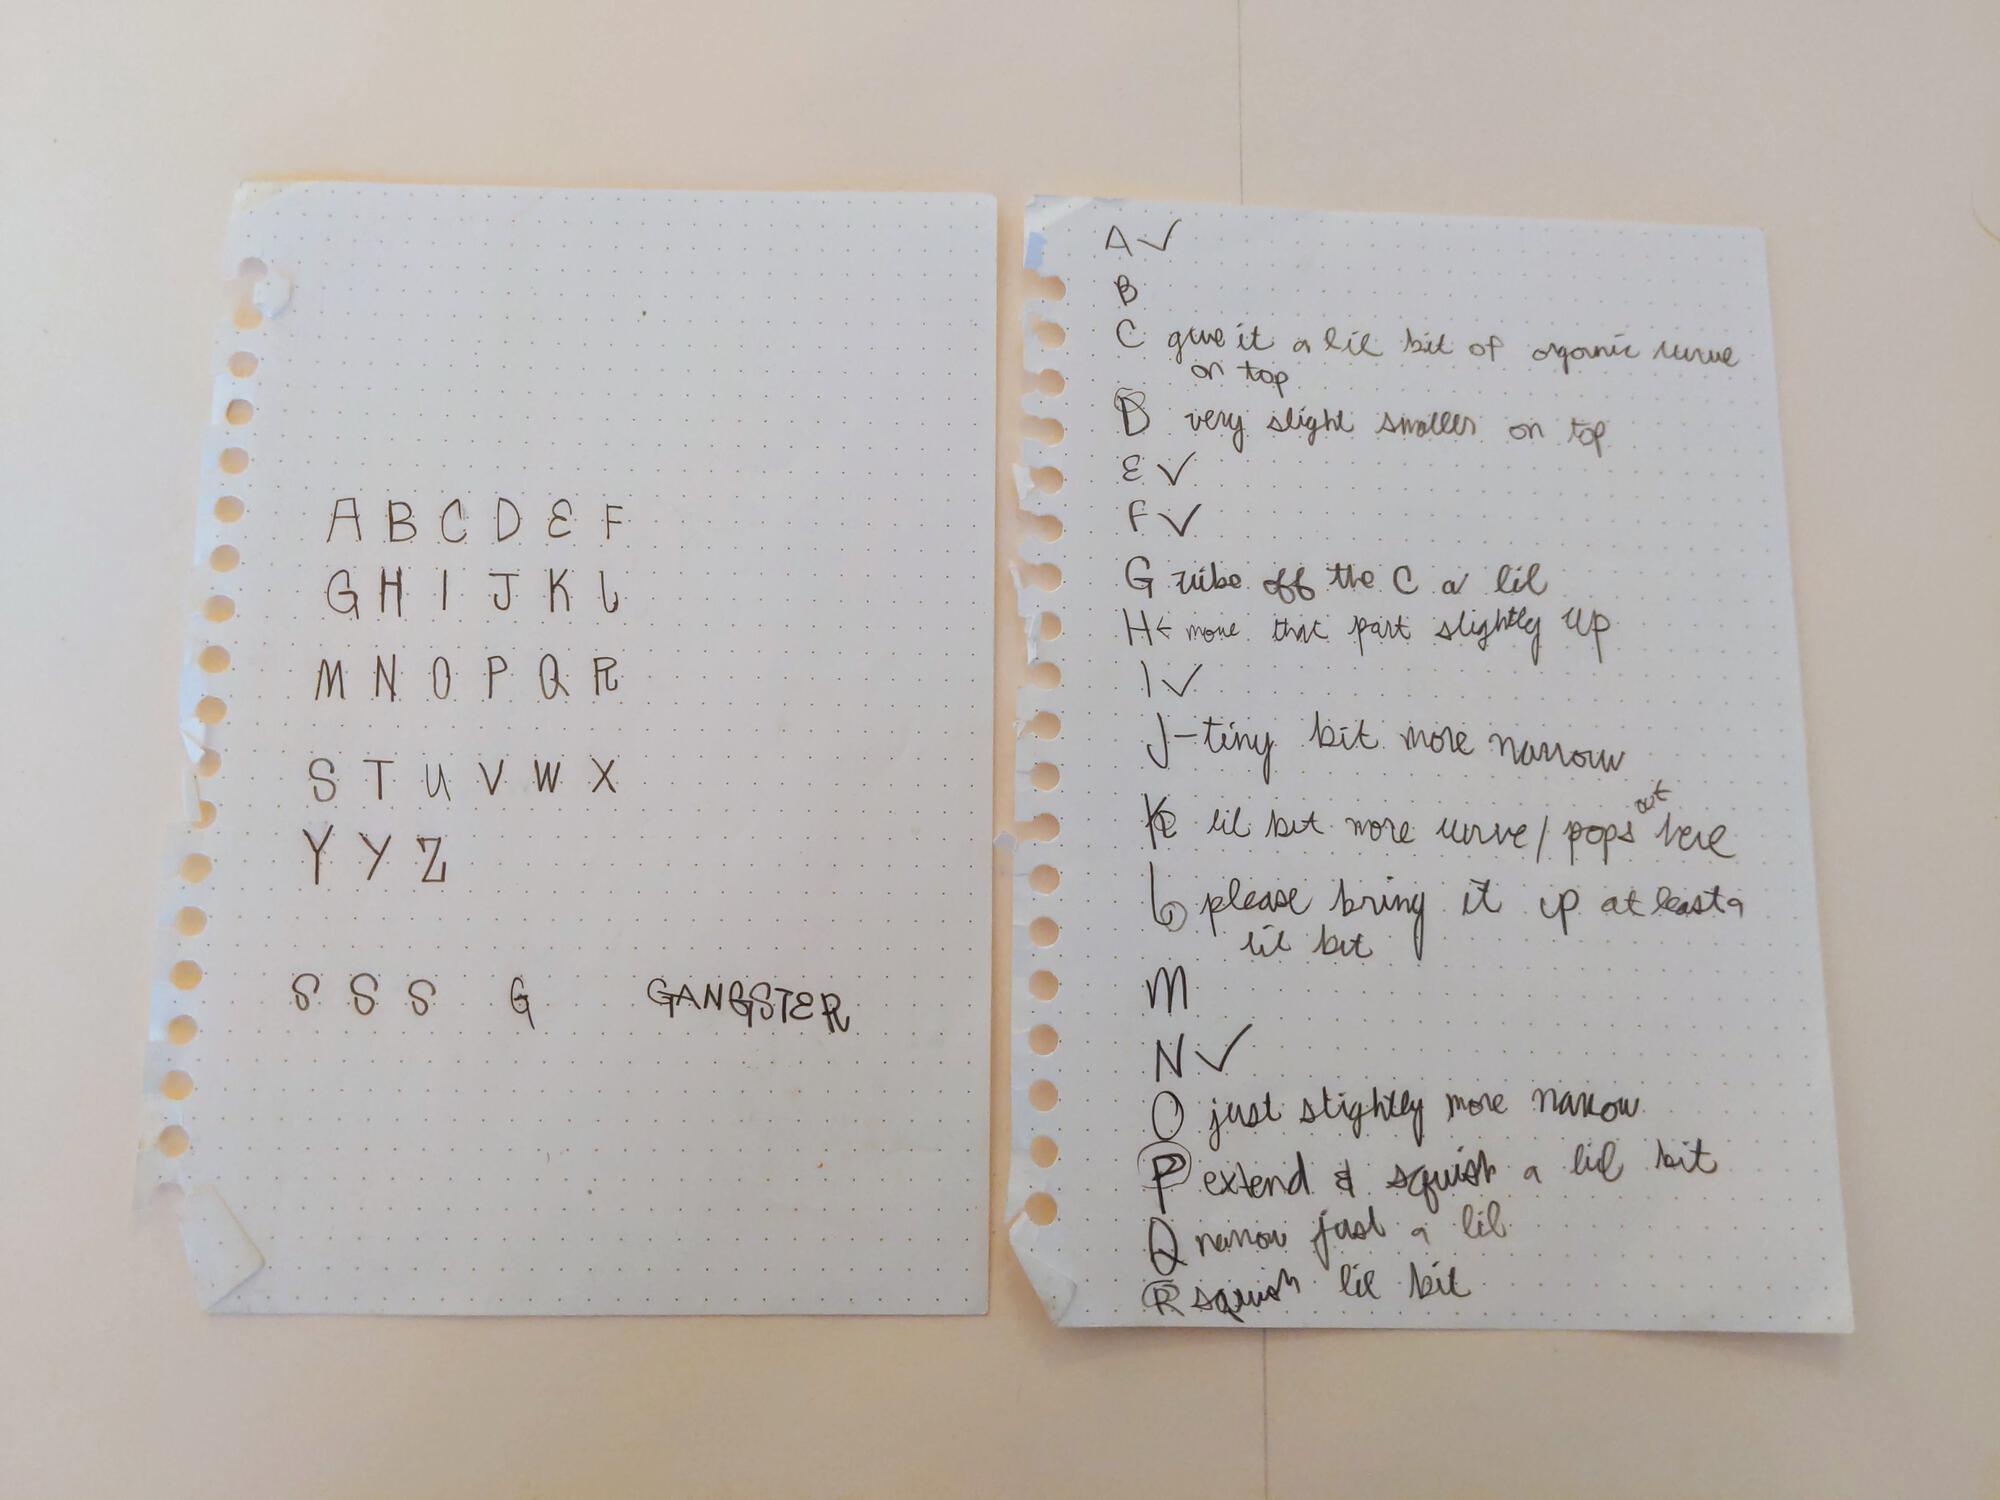 A B C D E F
G H I J K L
M N O P Q R
S T U V W X
Y Y Z
S S S G GANGSTER
A ✓
B
C give it a lil bit of organic curve
on top
D very slight smaller on top
E ✓
F ✓
G vibe off the C a lil
H ← move that part slightly up
I ✓
J - tiny bit more narrow
K lil bit more curve / pops out here
L please bring it up at least a
lil bit
M
N ✓
O just slightly more narrow
P extend & squish a lil bit
Q narrow just a lil
R squish lil bit